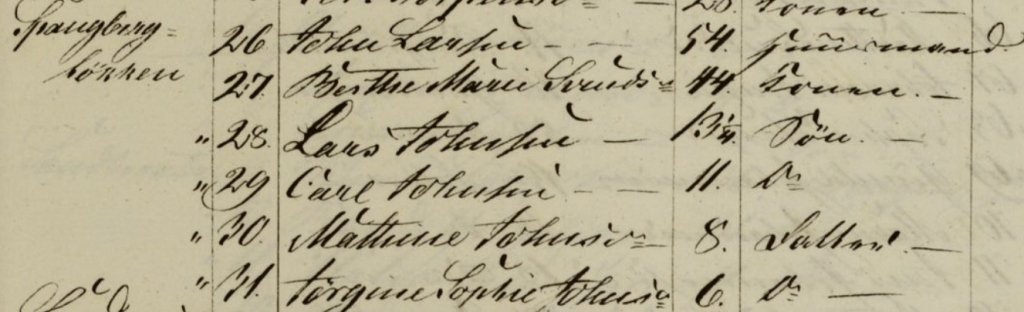 28. Konen —
Spangberg= 26 John Larsen — 54. Huusmand
løkken 27. Berthe Marie Svends= 44. Konen. —
" 28. Lars Johnsen — 13¼. Søn. —
" 29 Carl Johnsen — — 11. Do
" 30. Mathine Johnsd= 8. Datter. —
" 31. Jørgine Sophie Johnsd= 6. Do —